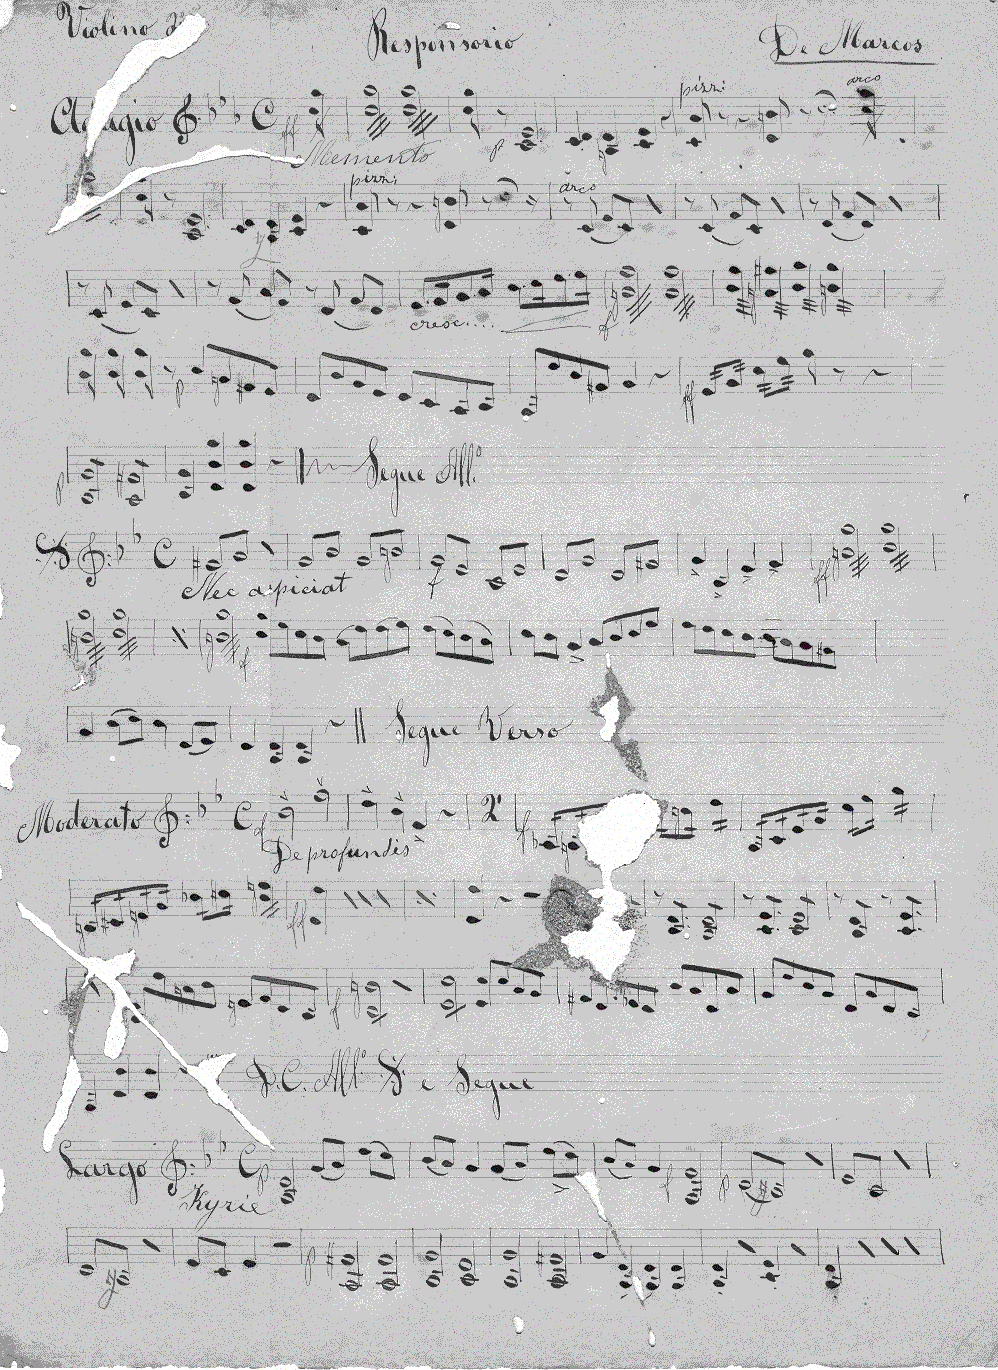 Violino 2º Responsorio De Marcos
Adagio C ff p pizz: arco
Memento
pizz: arco
cresc.... f
p ff
p Segue All.º
C
Nec aspiciat f ff
f
Segue Verso
Moderato C f 2ª f
De profundis
ff
f
D.C. All.º e Segue
Largo C p f p
Kyrie
p